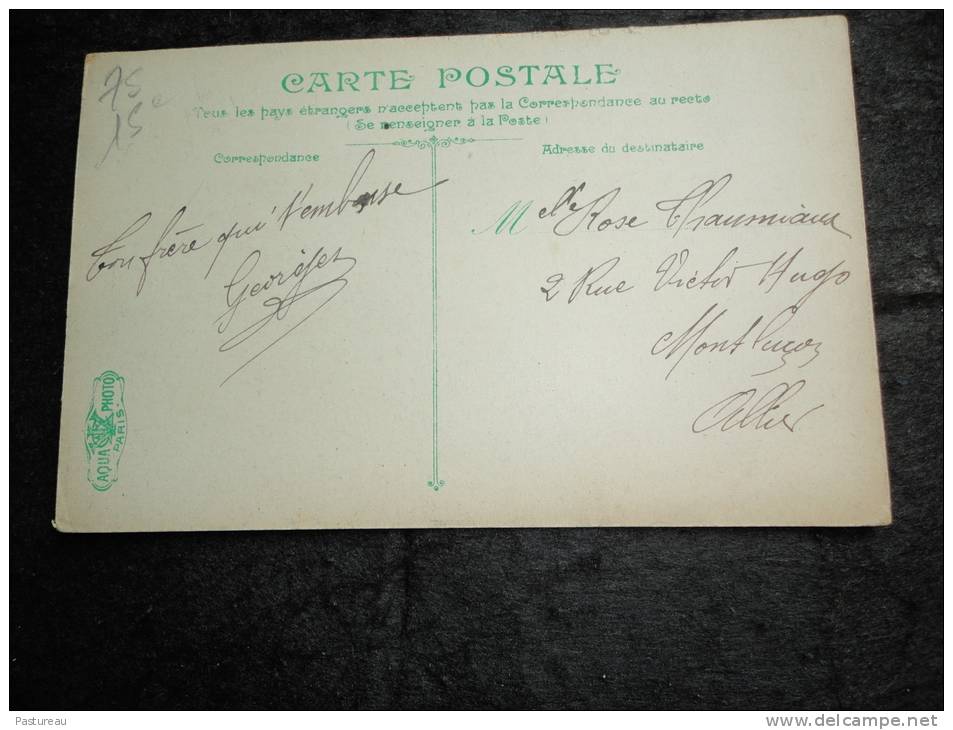 75
15e
CARTE POSTALE
Tous les pays étrangers n'acceptent pas la Correspondance au recto
(Se renseigner à la Poste)
Correspondance
Adresse du destinataire
Ton frère qui t'embrasse
Georges
Melle Rose
2 Rue Victor Hugo
Montluçon
Allier
AQUA PHOTO
PARIS
Pastureau
www.delcampe.net